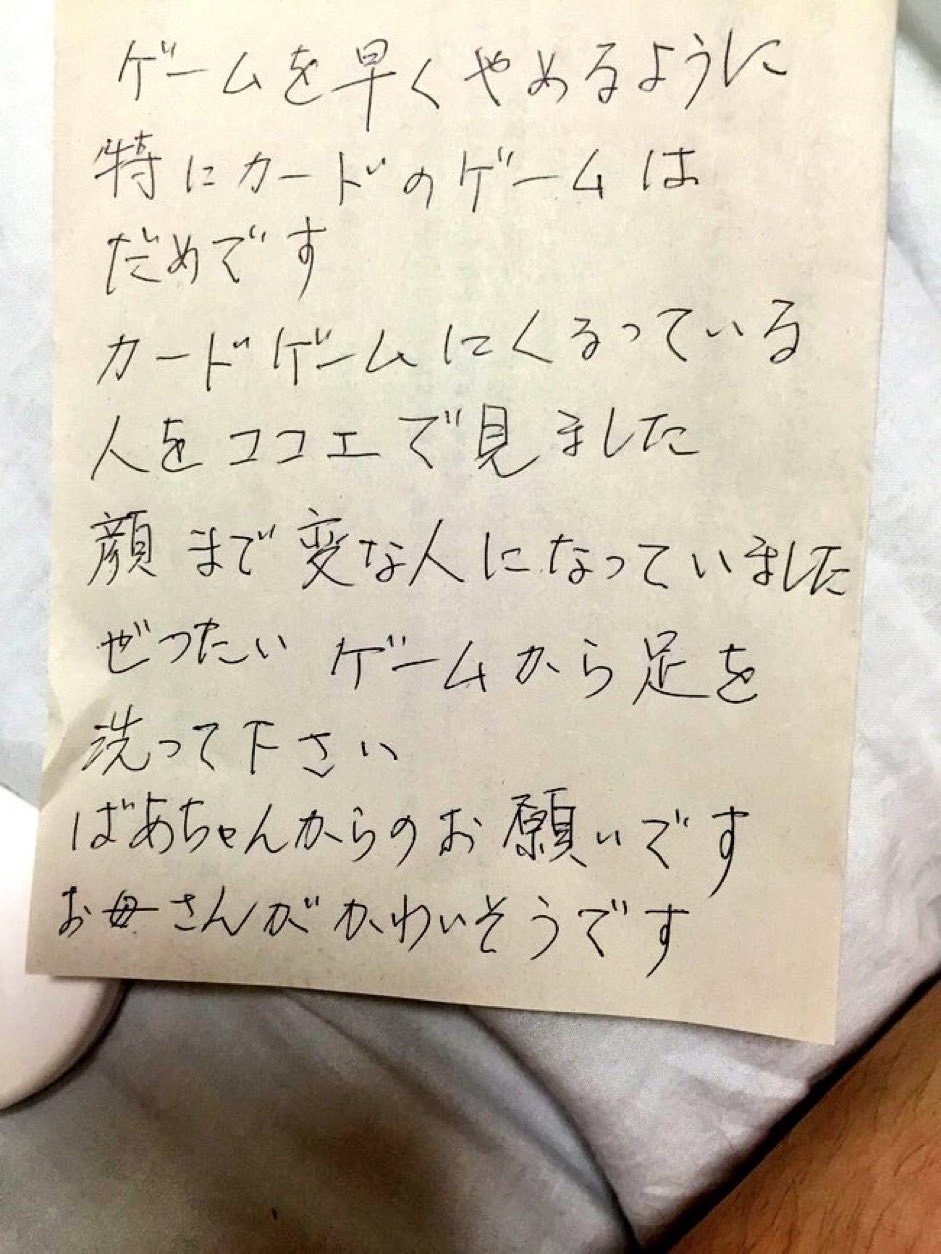 ゲームを早くやめるように
特にカードのゲームは
だめです
カードゲームにくるっている
人をココエで見ました
顔まで変な人になっていました
ぜったい ゲームから足を
洗って下さい
ばあちゃんからのお願いです
お母さんがかわいそうです